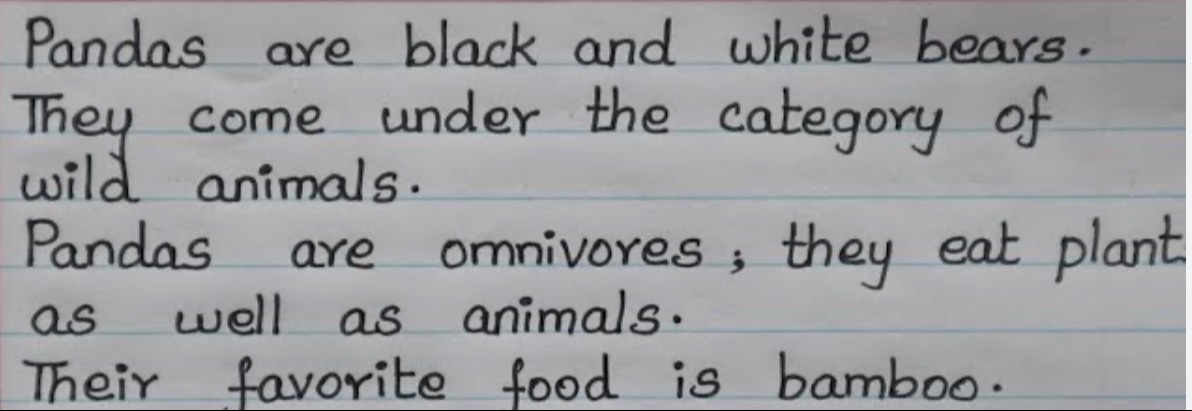 Pandas are black and white bears.
They come under the category of
wild animals.
Pandas are omnivores; they eat plant
as well as animals.
Their favorite food is bamboo.